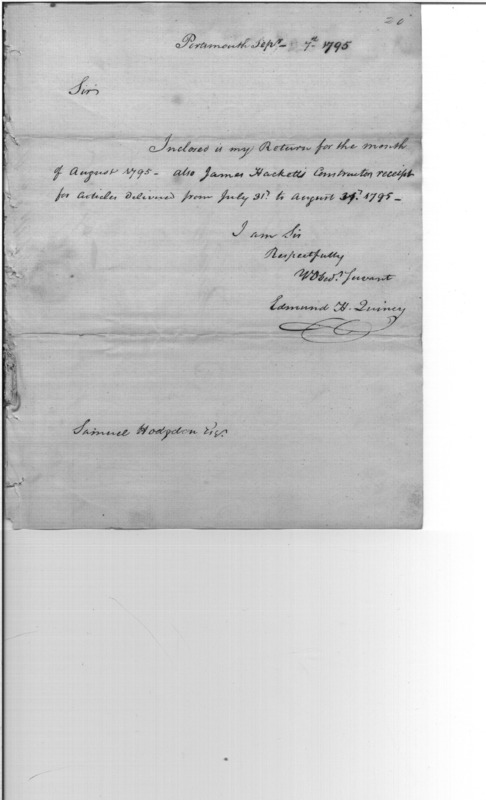 20
Portsmouth Sepr. 7th 1795
Sir
Inclosed is my Return for the month
of August 1795 - also James Hacketts Constructor receipt
for articles delivered from July 31st to August 31st 1795 -
I am Sir
Respectfully
Obedt. Servant
Edmund H. Quincy
Samuel Hodgdon Esqr.